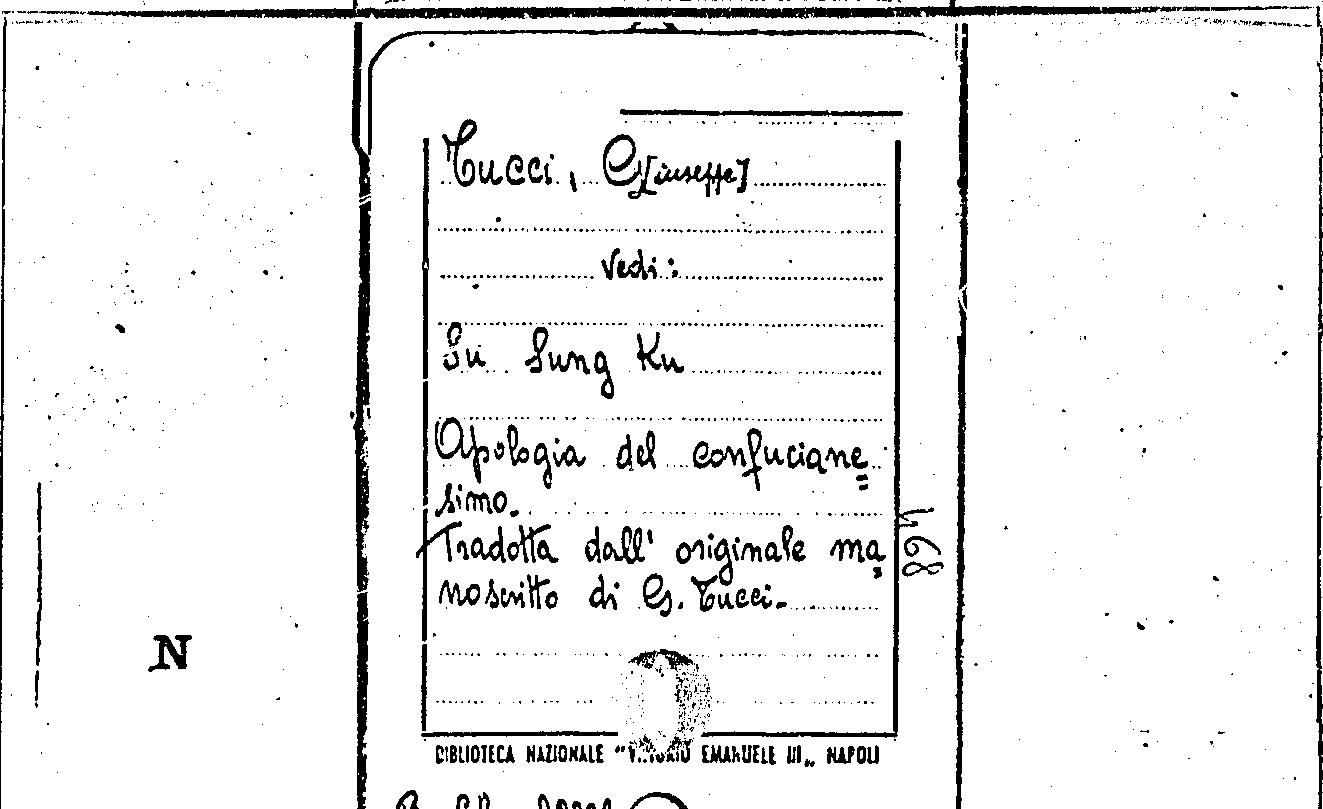 Tucci, G[iuseppe]
Vedi:
Su Sung Ku
Apologia del confuciane=
simo.
Tradotta dall' originale ma=
noscritto di G. Tucci.
468
N
BIBLIOTECA NAZIONALE "VITTORIO EMANUELE III„ NAPOLI